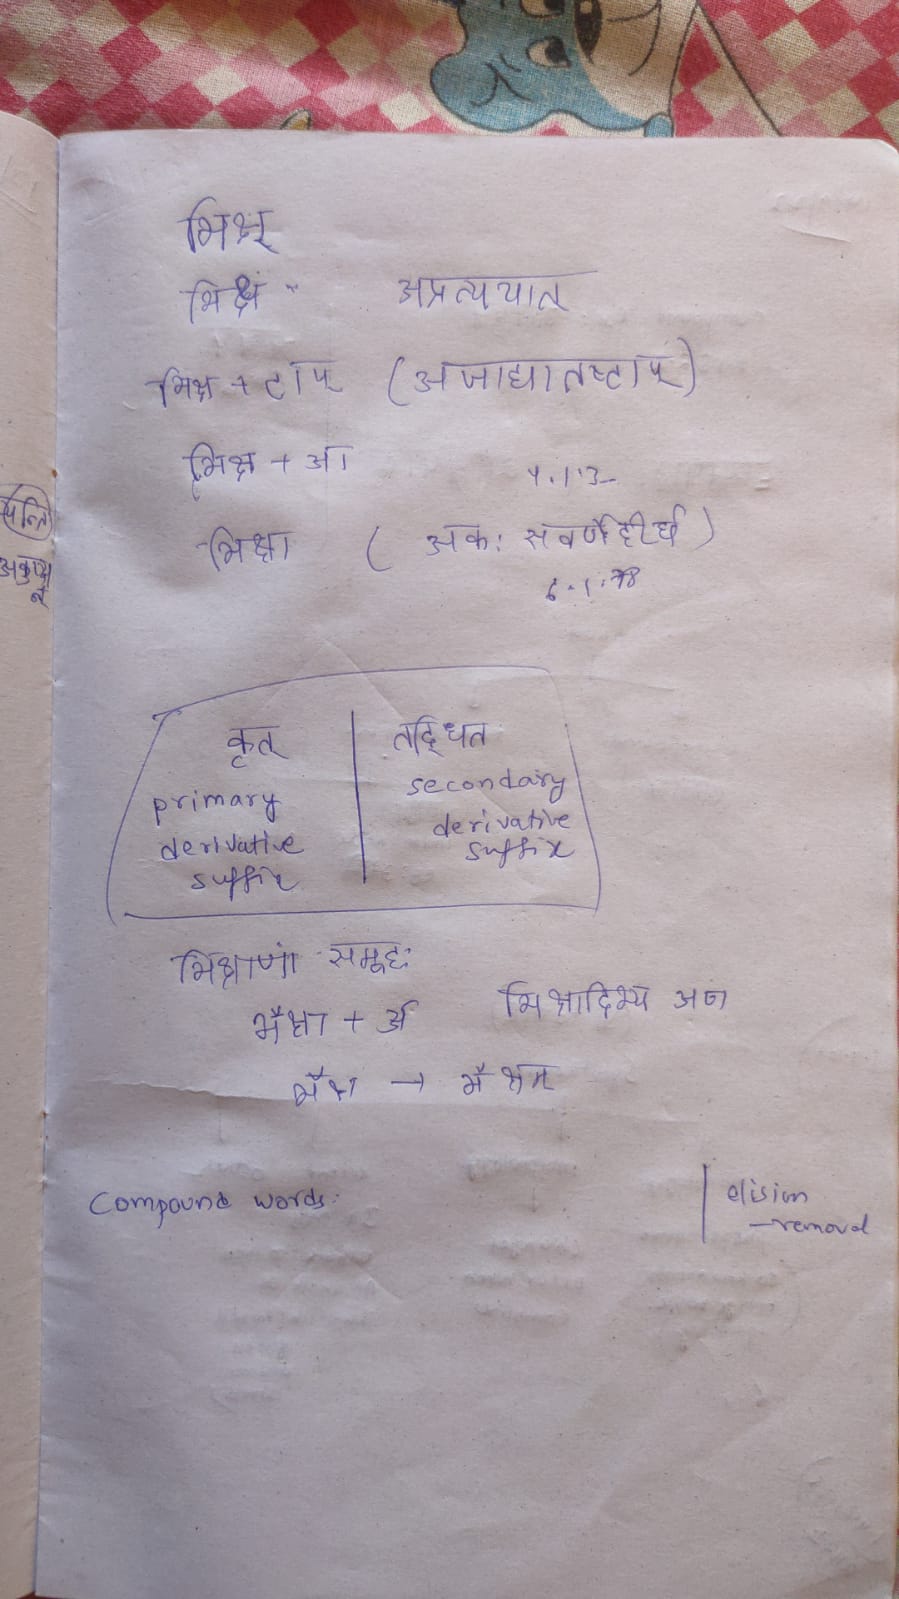 भिक्ष्
भिक्ष " अप्रत्ययात्
भिक्ष + टाप् (अजाद्यातष्टाप्)
भिक्ष + आ
4.1.3
भिक्षा ( अकः सवर्णे दीर्घ )
6.1.98
कृत् | तद्धित
primary derivative suffix | secondary derivative suffix
भिक्षाणां समूहः
भैक्षा + अ भिक्षादिभ्य अण
भैक्ष → भैक्षम्
Compound words: | elision
—removal